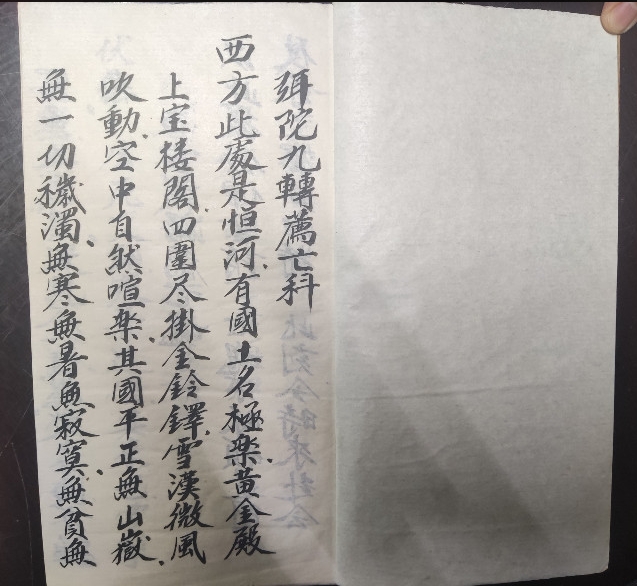 弭陀九轉薦亡科
西方此處是恒河有國土名極楽黄金殿
上宝楼閣四圍尽掛金鈴鐸雪漢微風
吹動空中自然喧楽其國平正無山嶽
無一切穢濁無寒無暑無寂寞無貧無